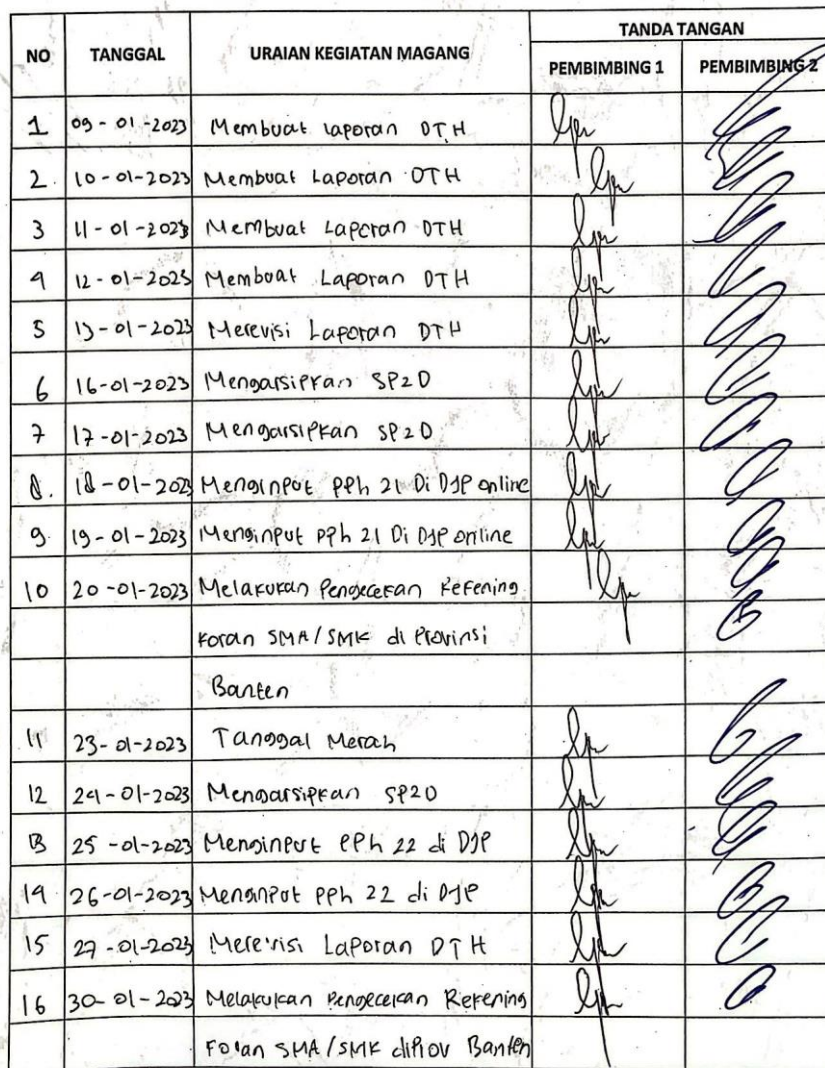 NO TANGGAL URAIAN KEGIATAN MAGANG TANDA TANGAN
PEMBIMBING 1 PEMBIMBING 2
1 09-01-2023 Membuat Laporan DTH
2. 10-01-2023 Membuat Laporan DTH
3 11-01-2023 Membuat Laporan DTH
4 12-01-2023 Membuat Laporan DTH
5 13-01-2023 Merevisi Laporan DTH
6 16-01-2023 Mengarsipkan SP2D
7 17-01-2023 Mengarsipkan SP2D
8. 18-01-2023 Menginput PPh 21 Di DJP online
9. 19-01-2023 Menginput PPh 21 Di DJP online
10 20-01-2023 Melakukan Pengecekan Rekening
Koran SMA/SMK di Provinsi
Banten
11 23-01-2023 Tanggal Merah
12 24-01-2023 Mengarsipkan SP2D
13 25-01-2023 Menginput PPh 22 di DJP
14 26-01-2023 Menginput PPh 22 di DJP
15 27-01-2023 Merevisi Laporan DTH
16 30-01-2023 Melakukan Pengecekan Rekening
Koran SMA/SMK diProv Banten